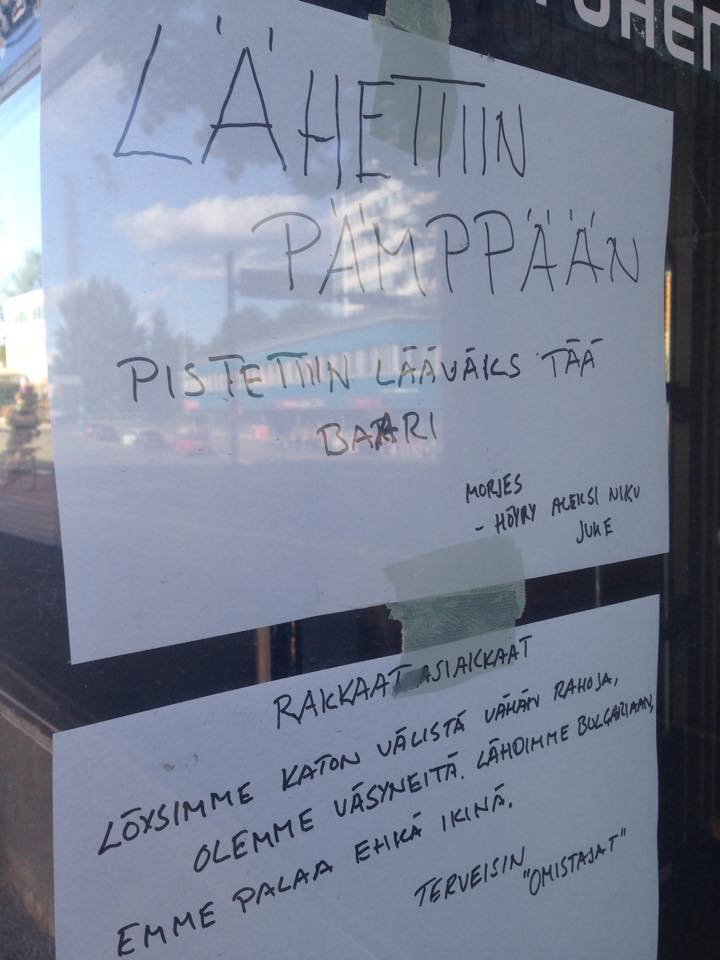 PUHEN
LÄHETTIIN
PÄMPPÄÄN
PISTETTIIN LÄÄVÄKS TÄÄ
BAARI
MORJES
- HÖYRY ALEKSI NIKU
JUKE
RAKKAAT ASIAKKAAT
LÖYSIMME KATON VÄLISTÄ VÄHÄN RAHOJA,
OLEMME VÄSYNEITÄ. LÄHDIMME BULGARIAAN,
EMME PALAA EHKÄ IKINÄ.
TERVEISIN
"OMISTAJAT"